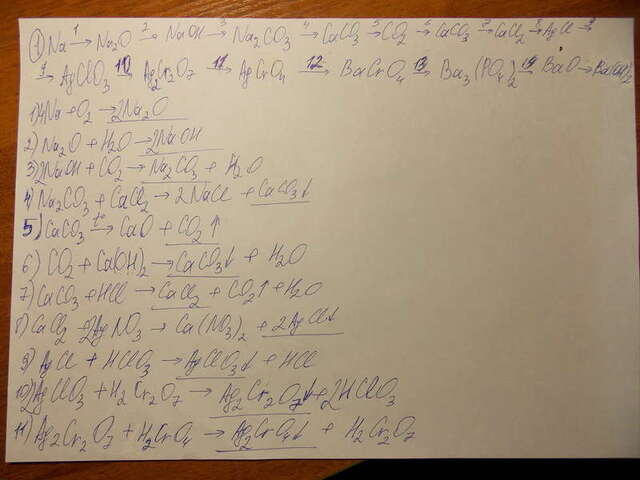 ① Na →1 Na2O →2 NaOH →3 Na2CO3 →4 CaCO3 →5 CO2 →6 CaCO3 →7 CaCl2 →8 AgCl →9
→9 AgClO3 →10 Ag2Cr2O7 →11 AgCrO4 →12 BaCrO4 →13 Ba3(PO4)2 →14 BaO → Ba(OH)2
1) 4Na + O2 → 2Na2O
2) Na2O + H2O → 2NaOH
3) 2NaOH + CO2 → Na2CO3 + H2O
4) Na2CO3 + CaCl2 → 2NaCl + CaCO3↓
5) CaCO3 →t° CaO + CO2↑
6) CO2 + Ca(OH)2 → CaCO3↓ + H2O
7) CaCO3 + HCl → CaCl2 + CO2↑ + H2O
8) CaCl2 + 2AgNO3 → Ca(NO3)2 + 2AgCl↓
9) AgCl + HClO3 → AgClO3↓ + HCl
10) 2AgClO3 + H2Cr2O7 → Ag2Cr2O7↓ + 2HClO3
11) Ag2Cr2O7 + H2CrO4 → Ag2CrO4↓ + H2Cr2O7